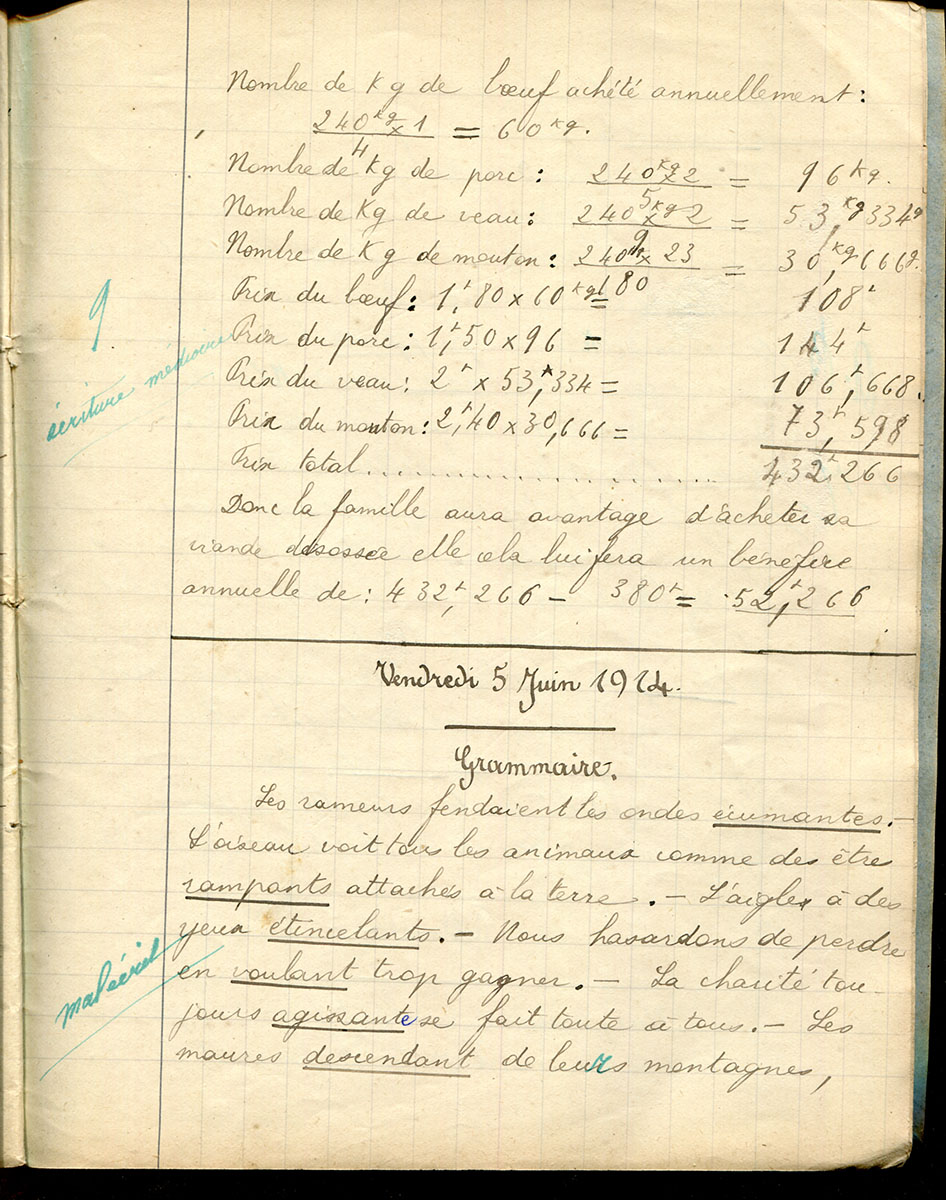 Nombre de Kg de bœuf achété annuellement :
240kg x 1 / 4 = 60 kg.
Nombre de Kg de porc : 240kg x 2 / 5 = 96 kg.
Nombre de Kg de veau : 240kg x 2 / 9 = 53,kg 334g
Nombre de Kg de mouton : 240 x 23 / 180 = 30,kg 666g.
Prix du bœuf : 1,f 80 x 60 kg = 108f
9
Prix du porc : 1,f 50 x 96 = 144f
écriture médiocre
Prix du veau : 2f x 53,334 = 106,f 668.
Prix du mouton : 2,f 40 x 30,666 = 73,f 598
Prix total.................................. 432,f 266
Donc la famille aura avantage d'acheter sa
viande désossée elle cela lui fera un bénéfice
annuelle de : 432,f 266 - 380f = 52,f 266
Vendredi 5 Juin 1914.
Grammaire.
Les rameurs fendaient les ondes écumantes. —
L'oiseau voit tous les animaux comme des être
rampants attachés à la terre. — L'aigle à des
yeux étincelants. — Nous hasardons de perdre
mal écrit
en voulant trop gagner. — La charité tou-
jours agissante se fait toute à tous. — Les
maures descendant de leurs montagnes,